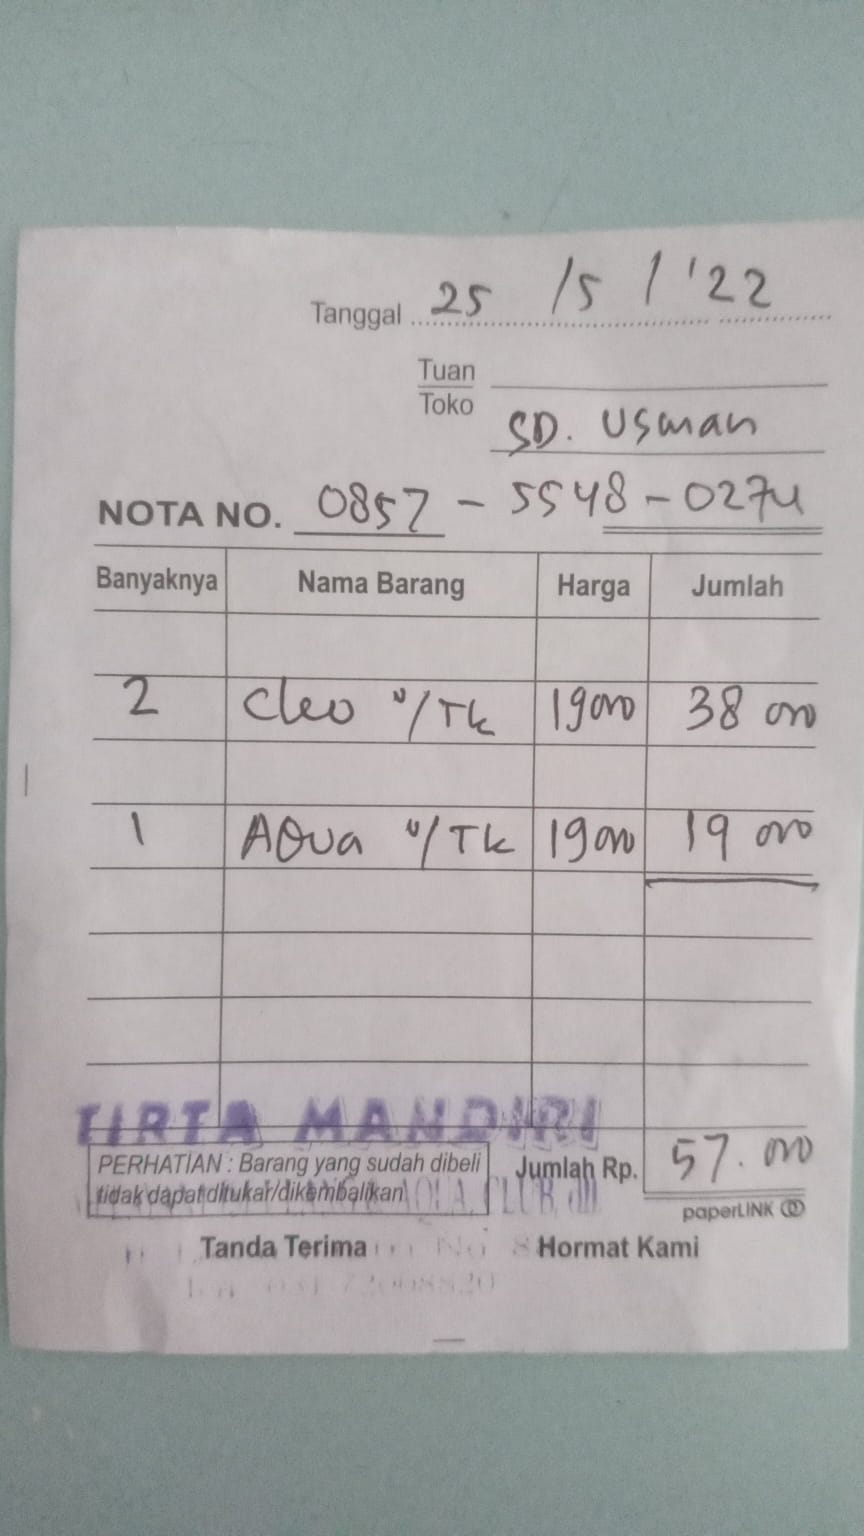 Tanggal 25 /5 / '22
Tuan
Toko
SD. Usman
NOTA NO. 0857 - 5548 - 0274
Banyaknya Nama Barang Harga Jumlah
2 Cleo u/Tk 19000 38 000
1 AQua u/Tk 19000 19 000
TIRTA MANDIRI
PERHATIAN : Barang yang sudah dibeli
tidak dapat ditukar/dikembalikan
Jumlah Rp. 57.000
AQUA, CLUB, dll
paperLINK
Tanda Terima Hormat Kami